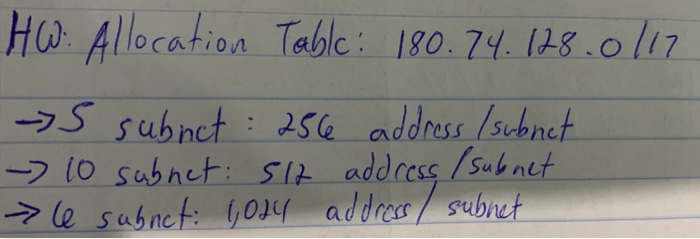 HW: Allocation Table: 180.74.128.0/17
→ 5 subnet: 256 address/subnet
→ 10 subnet: 512 address/subnet
→ 6 subnet: 1,024 address/subnet